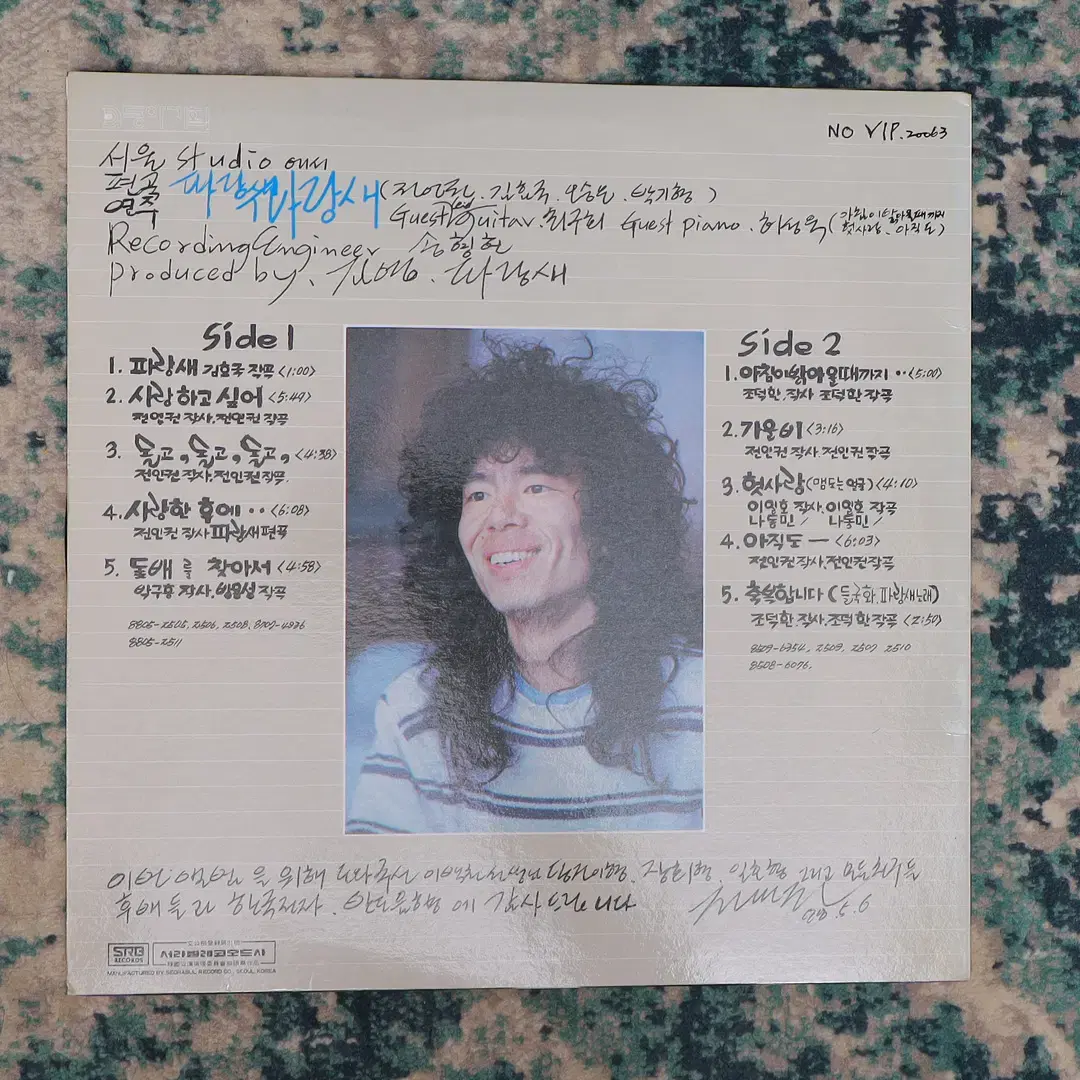 NO VIP.20063
서울 studio 에서
편곡 파랑새
연주 파랑새 (전인권. 김효국. 오승은. 박기형)
Guest guitar. 최구희 Guest piano. 허성욱 (아침이 밝아올때까지 헛사랑. 아직도)
Recording Engineer 송형헌
produced by. 김영. 파랑새
Side 1
1. 파랑새 김효국 작곡 <1:00>
2. 사랑하고 싶어 <5:49>
전인권 작사, 전인권 작곡
3. 돌고, 돌고, 돌고, <4:38>
전인권 작사, 전인권 작곡.
4. 사랑한 후에 ·· <6:08>
전인권 작사 파랑새 편곡
5. 돛배를 찾아서 <4:58>
작사, 작곡
8805-2505, 2506, 2508, 8707-4936
8805-2511
Side 2
1. 아침이 밝아 올때까지 ·· <5:00>
조덕환, 작사 조덕환 작곡
2. 가을비 <3:16>
전인권 작사 전인권 작곡
3. 헛사랑 (맴도는 얼굴) <4:10>
이영호 작사, 이영호 작곡
나동민 / 나동민 /
4. 아직도 — <6:03>
전인권 작사, 전인권 작곡
5. 축복합니다 (들국화, 파랑새 노래)
조덕환, 작사 조덕환 작곡 <2:50>
8509-6354, 2509, 2507 2510
8508-6076.
이번 앨범을 위해 도와주신 이백천 선생님 모든 친구들
후배들과 한국전자. 에 감사드립니다
SRB RECORDS
서라벌레코오드사
MANUFACTURED BY SEORABUL RECORD CO., SEOUL, KOREA